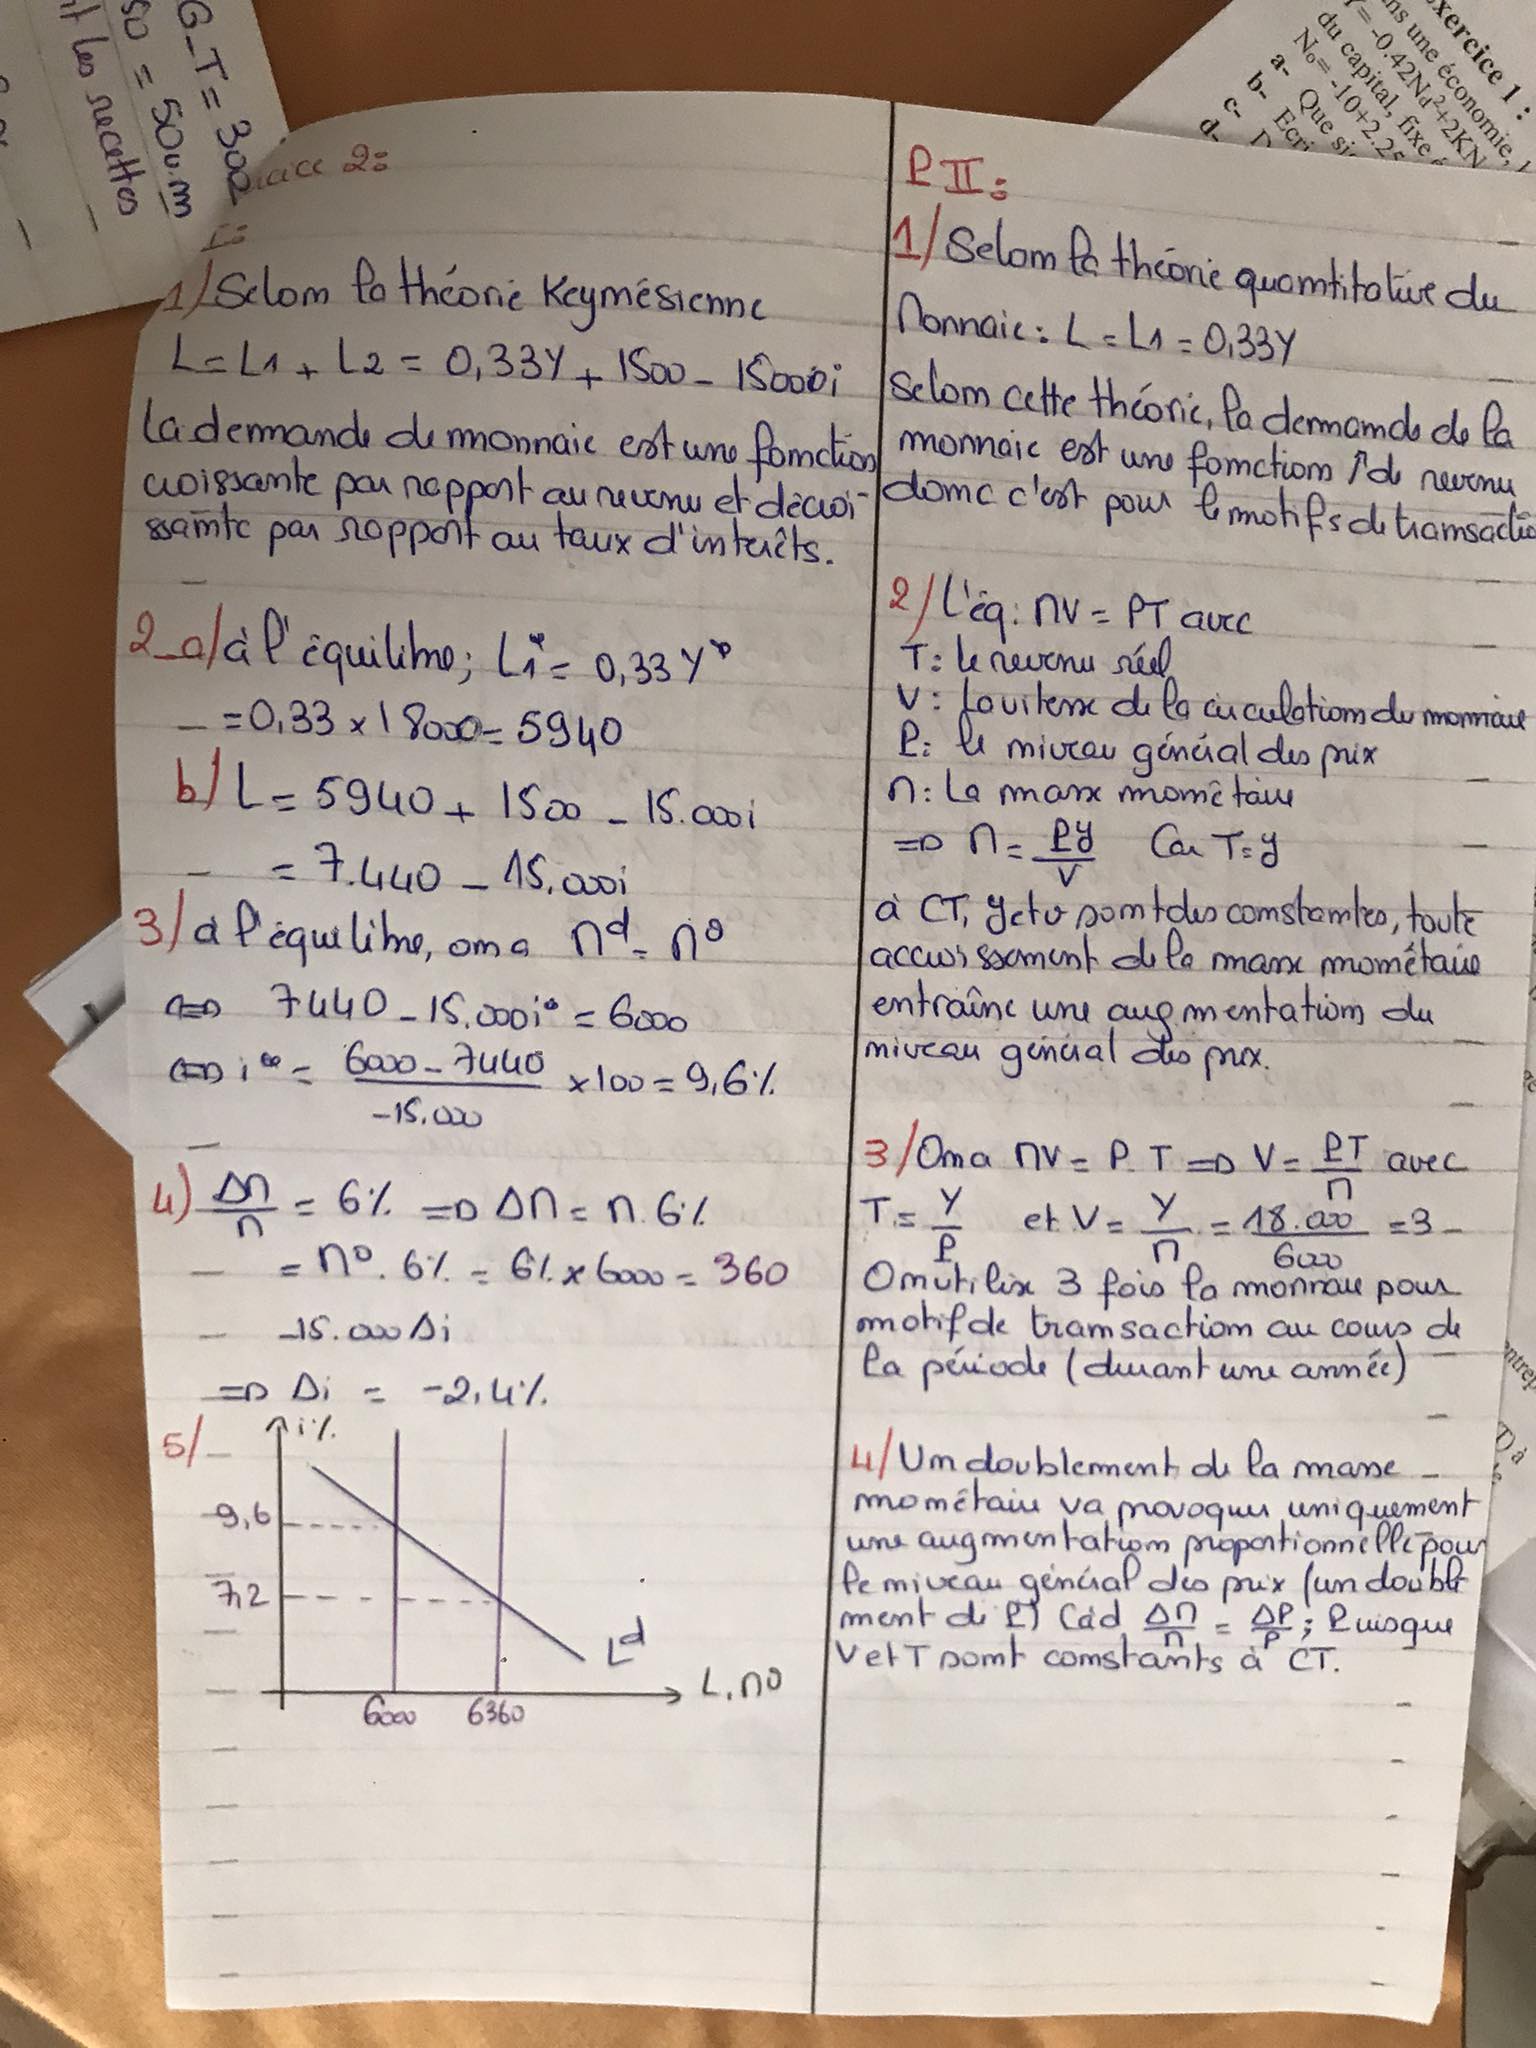 G-T = 300
50 = 50u.m
nt les recettes
Exercice 1 :
ns une économie, l
Y = -0.42Nd²+2KN
du capital, fixe
No= -10+2.25
a- Que si
b- Ecri
c- D
d-
cice 2:
I:
1/ Selom la théorie Keymésienne
L = L1 + L2 = 0,33Y + 1500 - 15000i
la demande de monnaie est une fomction
croissante par rapport au revenu et décroi-
ssamte par rapport au taux d'interêts.
2_a/ à l'équilibre; L1* = 0,33Y*
= 0,33 x 18000 = 5940
b/ L = 5940 + 1500 - 15.000i
= 7.440 - 15.000i
3/ à l'équilibre, om a Md = Mo
<=> 7440 - 15.000i* = 6000
<=> i* = (6000 - 7440)/(-15.000) x100 = 9,6%
4) ΔM/M = 6% => ΔM = M.6%
= Mo.6% = 6% x 6000 = 360
-15.000Δi
=> Δi = -2,4%
5/ i%
9,6
7,2
Ld
L, Mo
6000 6360
P II:
1/ Selom la théorie quamtitative du
Monnaie: L = L1 = 0,33Y
Selom cette théorie, la demamde de la
monnaie est une fomctiom ↑ de revenu
domc c'est pour le motifs de tramsactio
2/ L'éq: MV = PT avec
T: le revenu réel
V: la vitesse de la circulatiom du monnaie
P: le miveau général des prix
M: La masse momêtaire
=> M = Py/V Car T=y
à CT, y et v somt des comstamtes, toute
accroissement de la masse momêtaire
entraîne une augmentatiom du
miveau général des prix.
3/ Om a MV = P.T => V = PT/M avec
T = Y/P et V = Y/M = 18.000/6000 = 3
Om utilise 3 fois la monnaie pour
motif de tramsactiom au cours de
la période (durant une année)
4/ Um doublement de la masse
momêtaire va provoquer uniquement
une augmentatiom proportionnelle pour
le miveau général des prix (un double
ment de P) Càd ΔM/M = ΔP/P; Puisque
V et T somt comstants à CT.
entrep
T) à